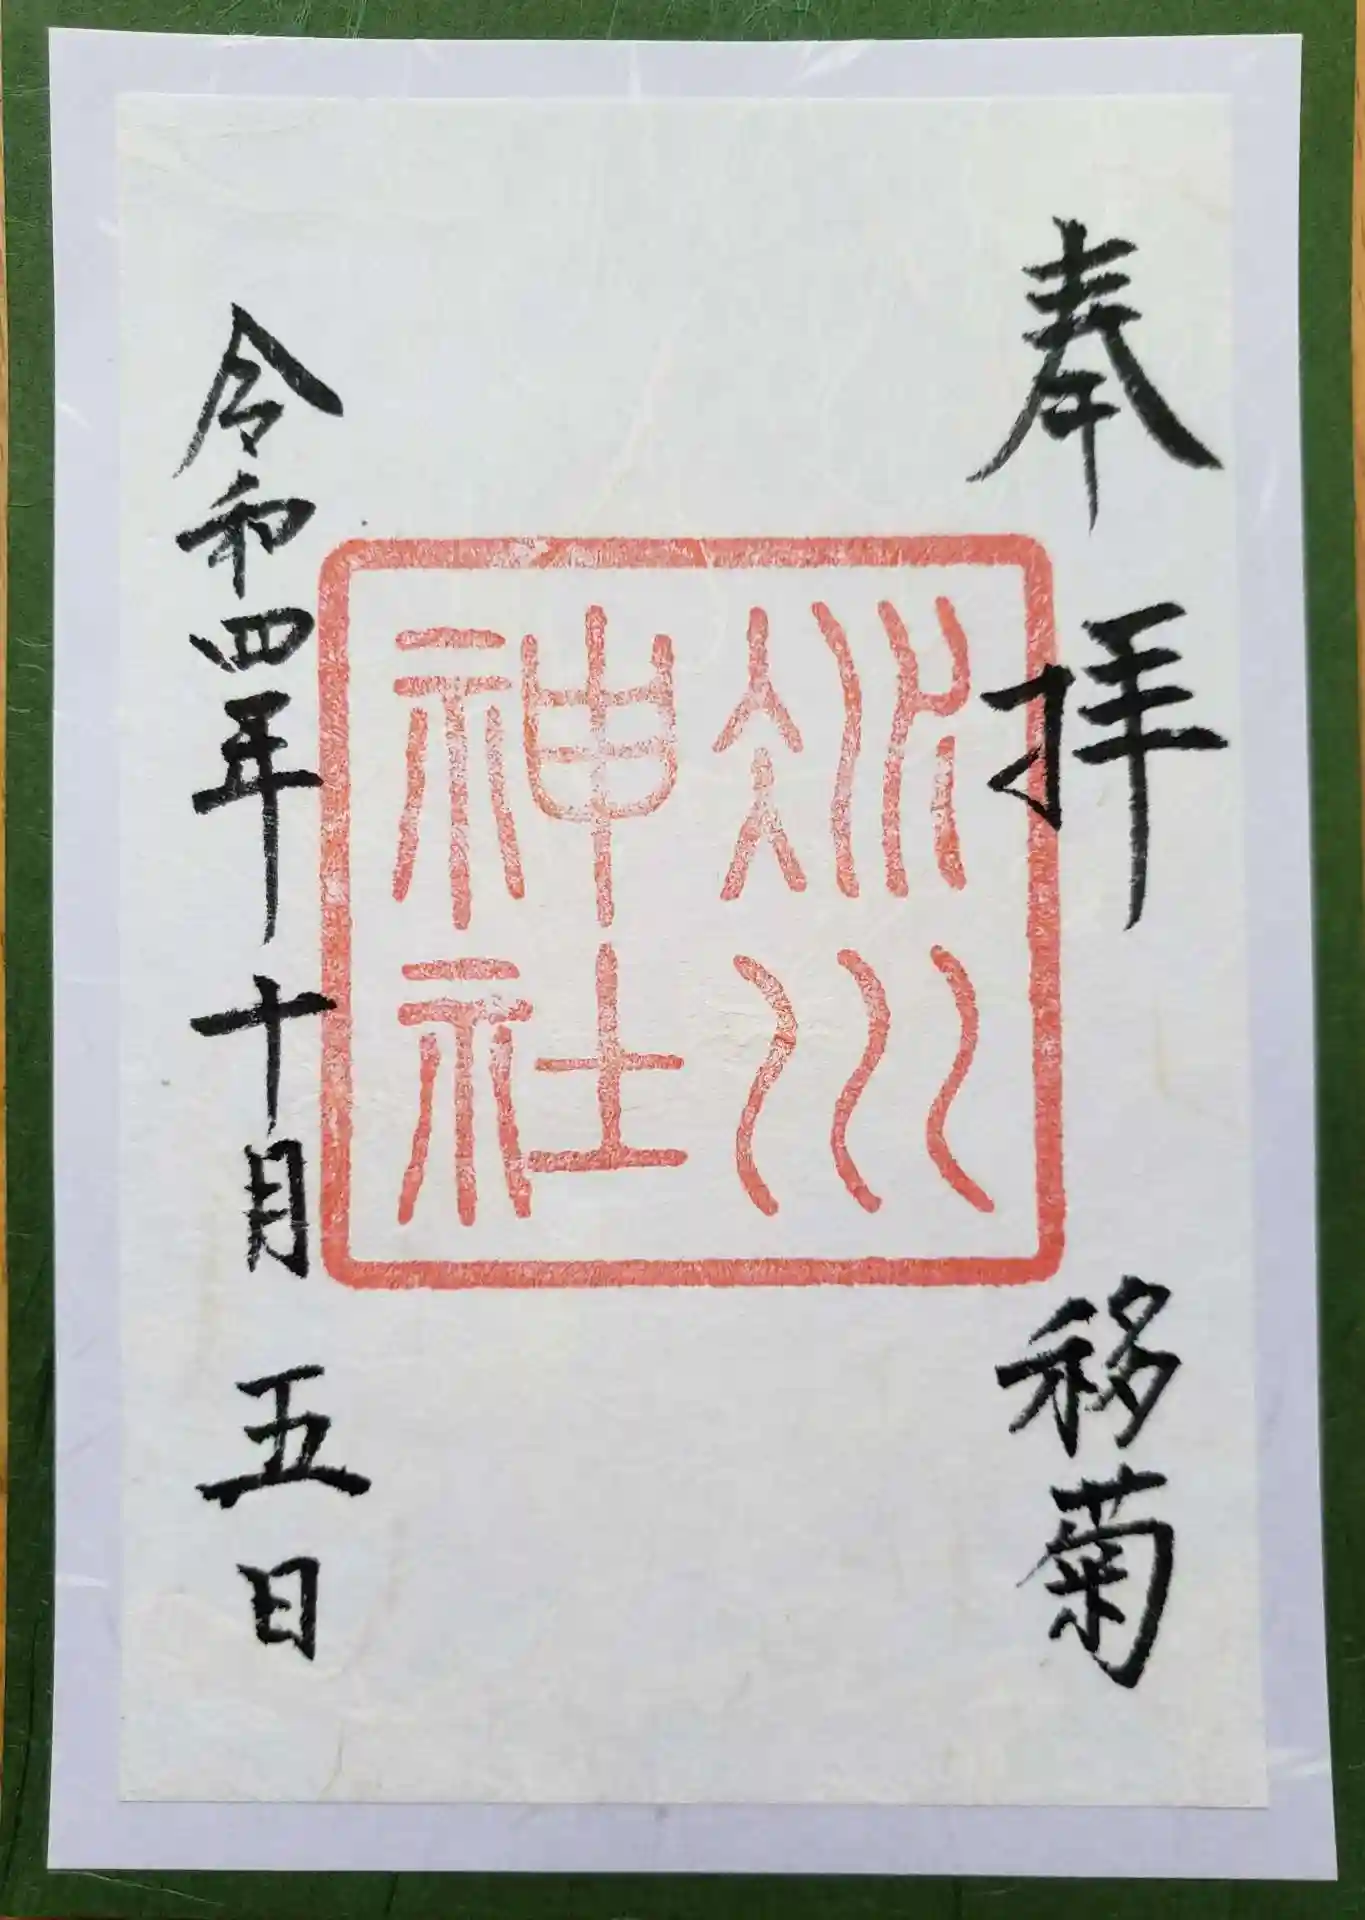 奉拝 移菊
氷川
神社
令和四年十月五日